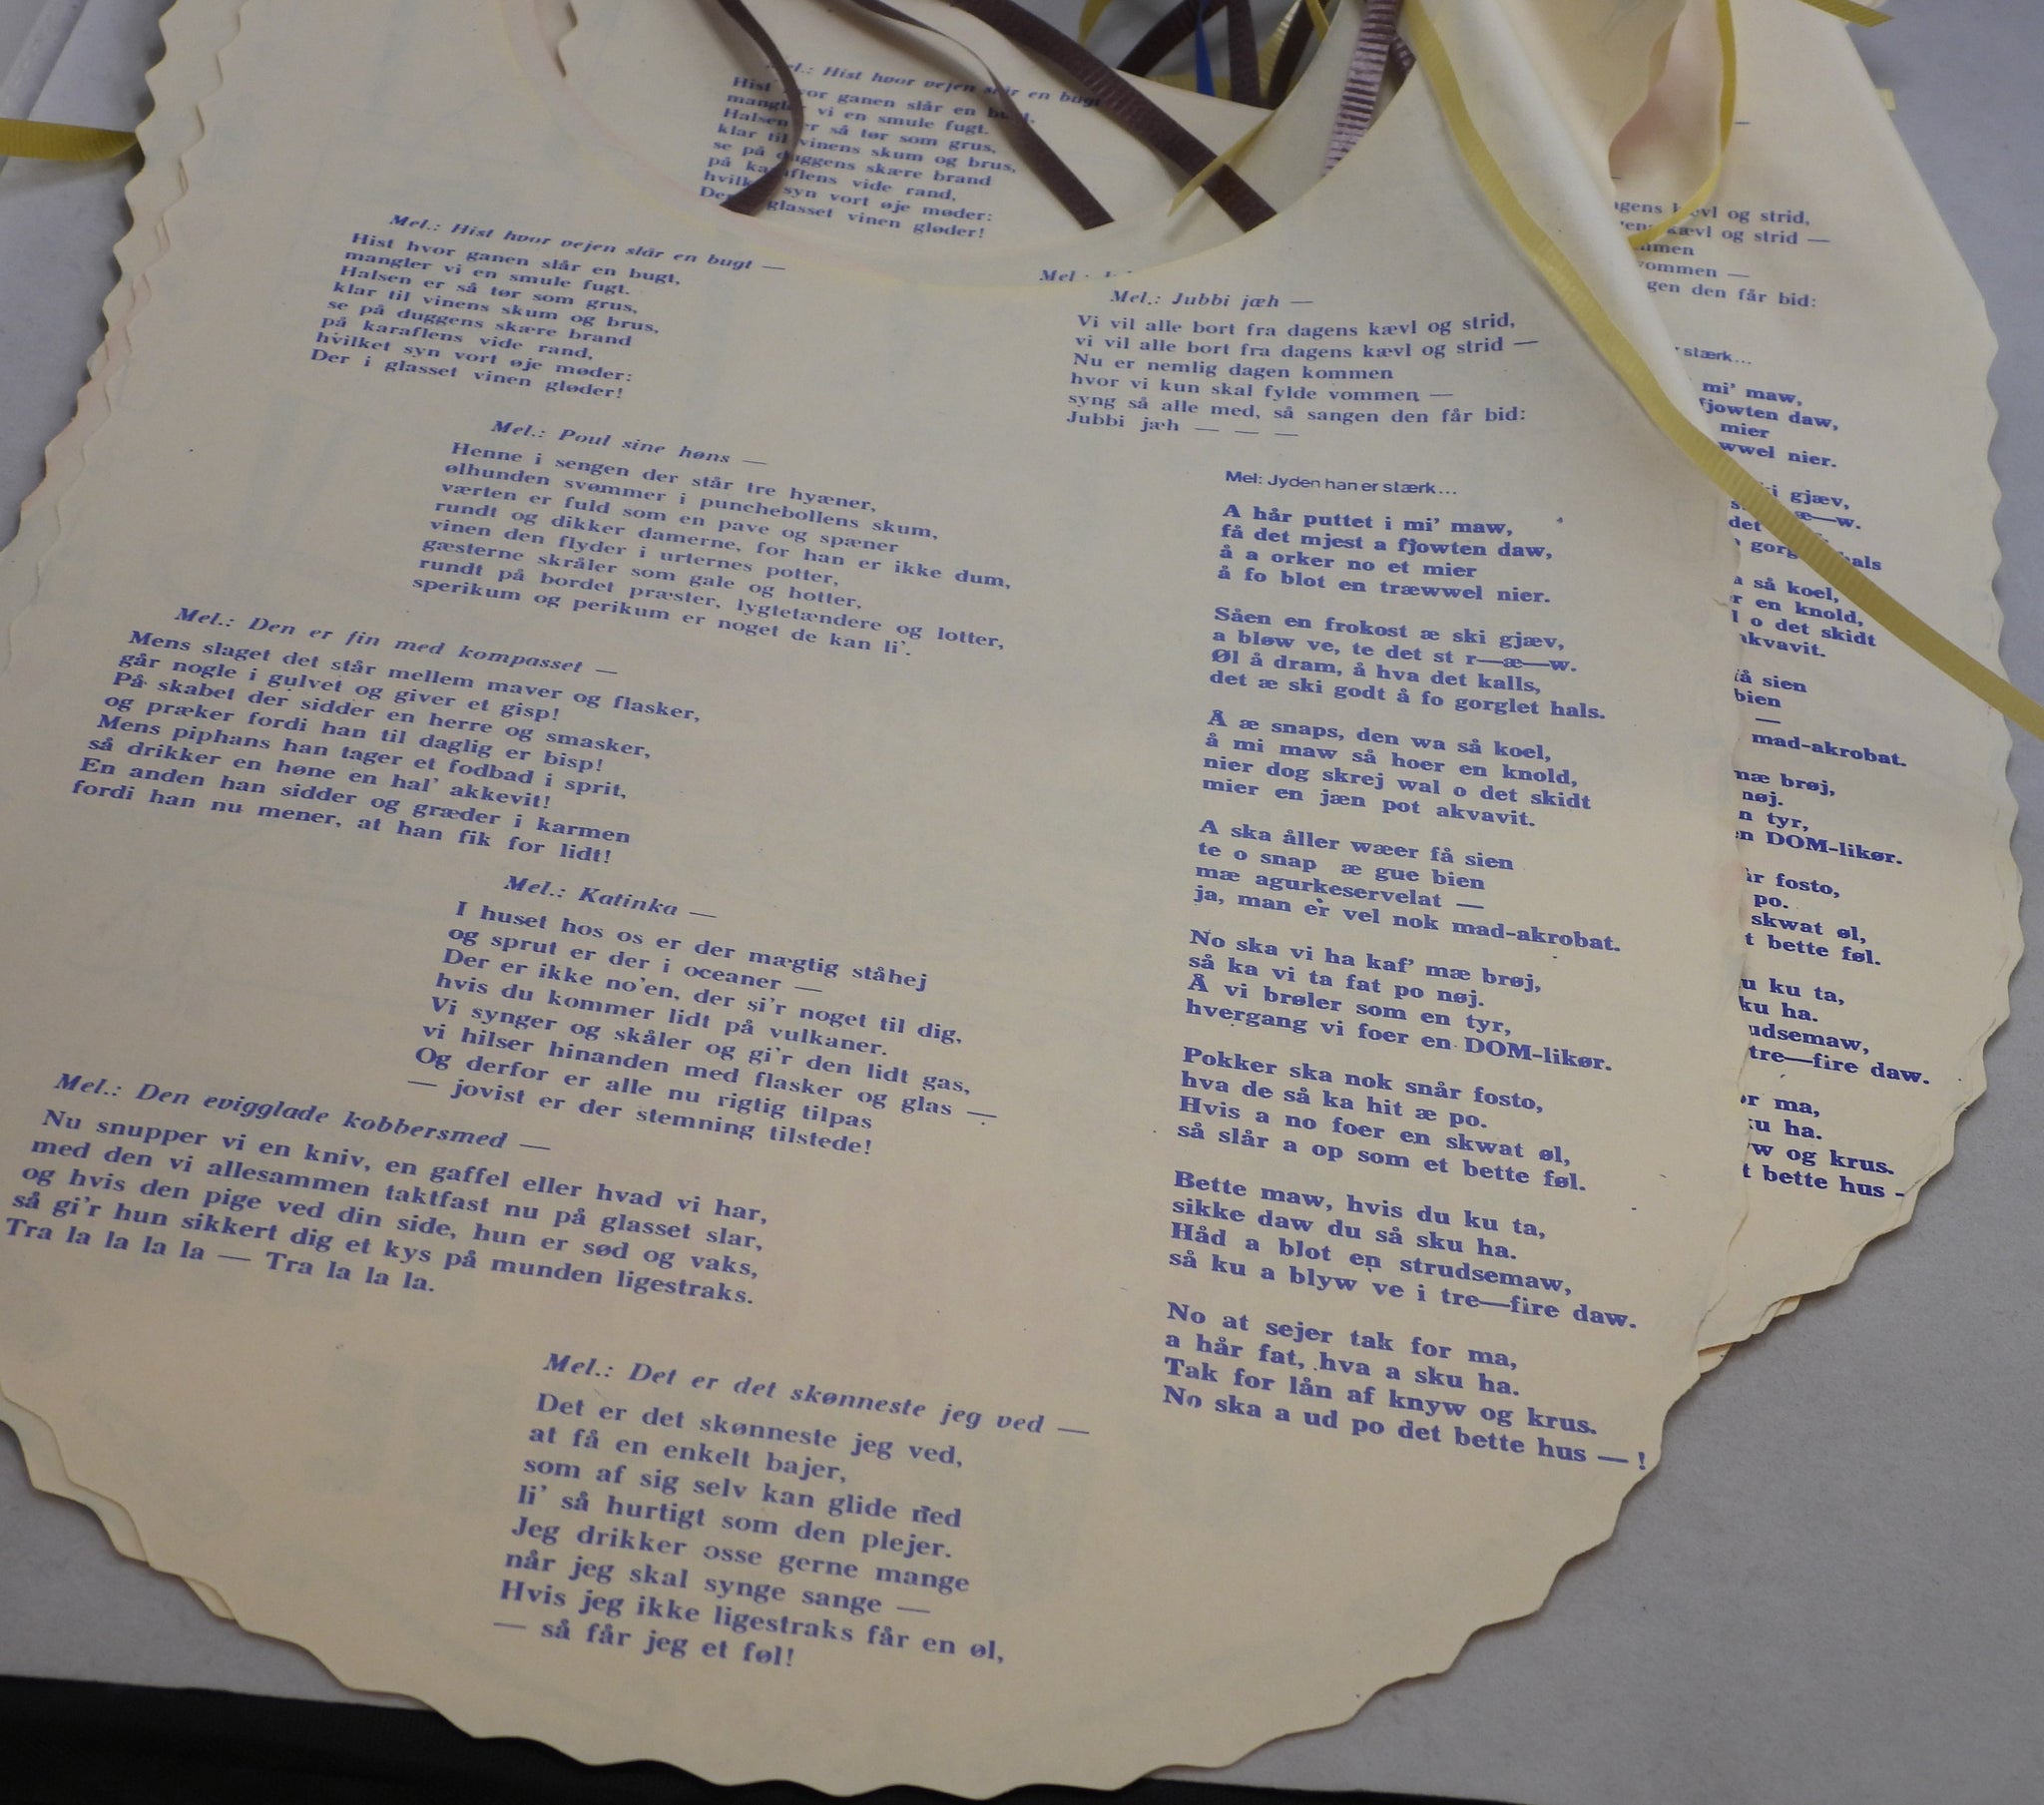 Mel.: Hist hvor vejen slår en bugt —
Hist hvor ganen slår en bugt,
mangler vi en smule fugt.
Halsen er så tør som grus,
klar til vinens skum og brus,
se på duggens skære brand
på karaflens vide rand,
hvilket syn vort øje møder:
Der i glasset vinen gløder!
Mel.: Poul sine høns —
Henne i sengen der står tre hyæner,
ølhunden svømmer i punchebollens skum,
værten er fuld som en pave og spæner
rundt og dikker damerne, for han er ikke dum,
vinen den flyder i urternes potter,
gæsterne skråler som gale og hotter,
rundt på bordet præster, lygtetændere og lotter,
sperikum og perikum er noget de kan li'.
Mel.: Den er fin med kompasset —
Mens slaget det står mellem maver og flasker,
går nogle i gulvet og giver et gisp!
På skabet der sidder en herre og smasker,
og præker fordi han til daglig er bisp!
Mens piphans han tager et fodbad i sprit,
så drikker en høne en hal' akkevit!
En anden han sidder og græder i karmen
fordi han nu mener, at han fik for lidt!
Mel.: Katinka —
I huset hos os er der mægtig ståhej
og sprut er der i oceaner —
Der er ikke no'en, der si'r noget til dig,
hvis du kommer lidt på vulkaner.
Vi synger og skåler og gi'r den lidt gas,
vi hilser hinanden med flasker og glas —
Og derfor er alle nu rigtig tilpas
— jovist er der stemning tilstede!
Mel.: Den evigglade kobbersmed —
Nu snupper vi en kniv, en gaffel eller hvad vi har,
med den vi allesammen taktfast nu på glasset slar,
og hvis den pige ved din side, hun er sød og vaks,
så gi'r hun sikkert dig et kys på munden ligestraks.
Tra la la la la — Tra la la la.
Mel.: Det er det skønneste jeg ved —
Det er det skønneste jeg ved,
at få en enkelt bajer,
som af sig selv kan glide ned
li' så hurtigt som den plejer.
Jeg drikker osse gerne mange
når jeg skal synge sange —
Hvis jeg ikke ligestraks får en øl,
— så får jeg et føl!
Mel.: Jubbi jæh —
Vi vil alle bort fra dagens kævl og strid,
vi vil alle bort fra dagens kævl og strid —
Nu er nemlig dagen kommen
hvor vi kun skal fylde vommen —
syng så alle med, så sangen den får bid:
Jubbi jæh — — —
Mel: Jyden han er stærk...
A hår puttet i mi' maw,
få det mjest a fjowten daw,
å a orker no et mier
å fo blot en træwwel nier.
Såen en frokost æ ski gjæv,
a bløw ve, te det st r—æ—w.
Øl å dram, å hva det kalls,
det æ ski godt å fo gorglet hals.
Å æ snaps, den wa så koel,
å mi maw så hoer en knold,
nier dog skrej wal o det skidt
mier en jæn pot akvavit.
A ska åller wæer få sien
te o snap æ gue bien
mæ agurkeservelat —
ja, man er vel nok mad-akrobat.
No ska vi ha kaf' mæ brøj,
så ka vi ta fat po nøj.
Å vi brøler som en tyr,
hvergang vi foer en DOM-likør.
Pokker ska nok snår fosto,
hva de så ka hit æ po.
Hvis a no foer en skwat øl,
så slår a op som et bette føl.
Bette maw, hvis du ku ta,
sikke daw du så sku ha.
Håd a blot en strudsemaw,
så ku a blyw ve i tre—fire daw.
No at sejer tak for ma,
a hår fat, hva a sku ha.
Tak for lån af knyw og krus.
No ska a ud po det bette hus — !
Mel.: Hist hvor vejen slår en bugt
Hist hvor ganen slår en
vi en smule fugt.
Halsen er så tør som grus,
klar til vinens skum og brus,
se på duggens skære brand
på karaflens vide rand,
hvilket syn vort øje møder:
glasset vinen gløder!
Mel
kævl og strid,
kævl og strid —
—
den får bid:
stærk...
mi' maw,
fjowten daw,
mier
nier.
gjæv,
æ—w.
det
så koel,
en knold,
o det skidt
akvavit.
få sien
bien
—
mad-akrobat.
mæ brøj,
nøj.
tyr,
DOM-likør.
fosto,
po.
skwat øl,
bette føl.
ku ta,
ku ha.
tre—fire daw.
ma,
ha.
og krus.
bette hus -